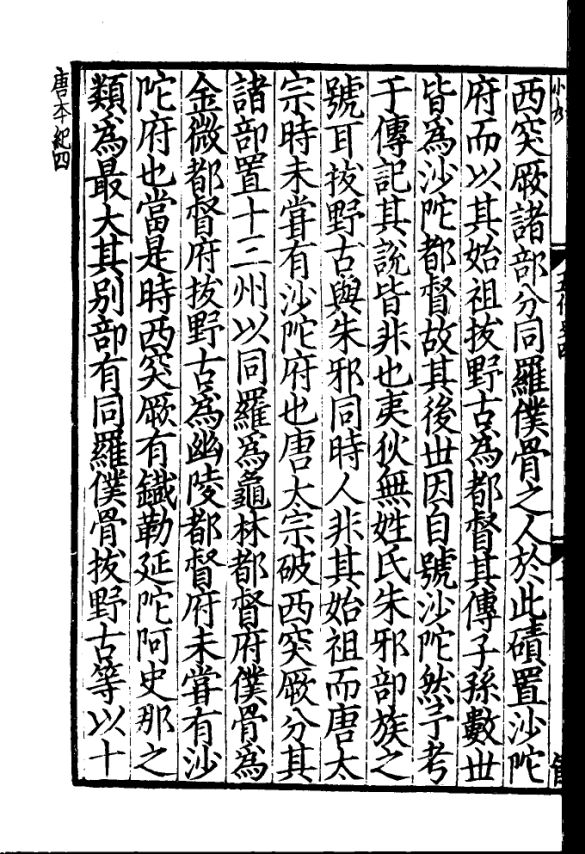 西突厥諸部分同羅僕骨之人於此磧置沙陀
府而以其始祖拔野古爲都督其傳子孫數世
皆爲沙陀都督故其後世因自號沙陀然予考
于傳記其說皆非也夷狄無姓氏朱邪部族之
號耳拔野古與朱邪同時人非其始祖而唐太
宗時未嘗有沙陀府也唐太宗破西突厥分其
諸部置十三州以同羅爲龜林都督府僕骨爲
金微都督府拔野古爲幽陵都督府未嘗有沙
陀府也當是時西突厥有鐵勒延陀阿史那之
類爲最大其别部有同羅僕骨拔野古等以十
唐本紀四